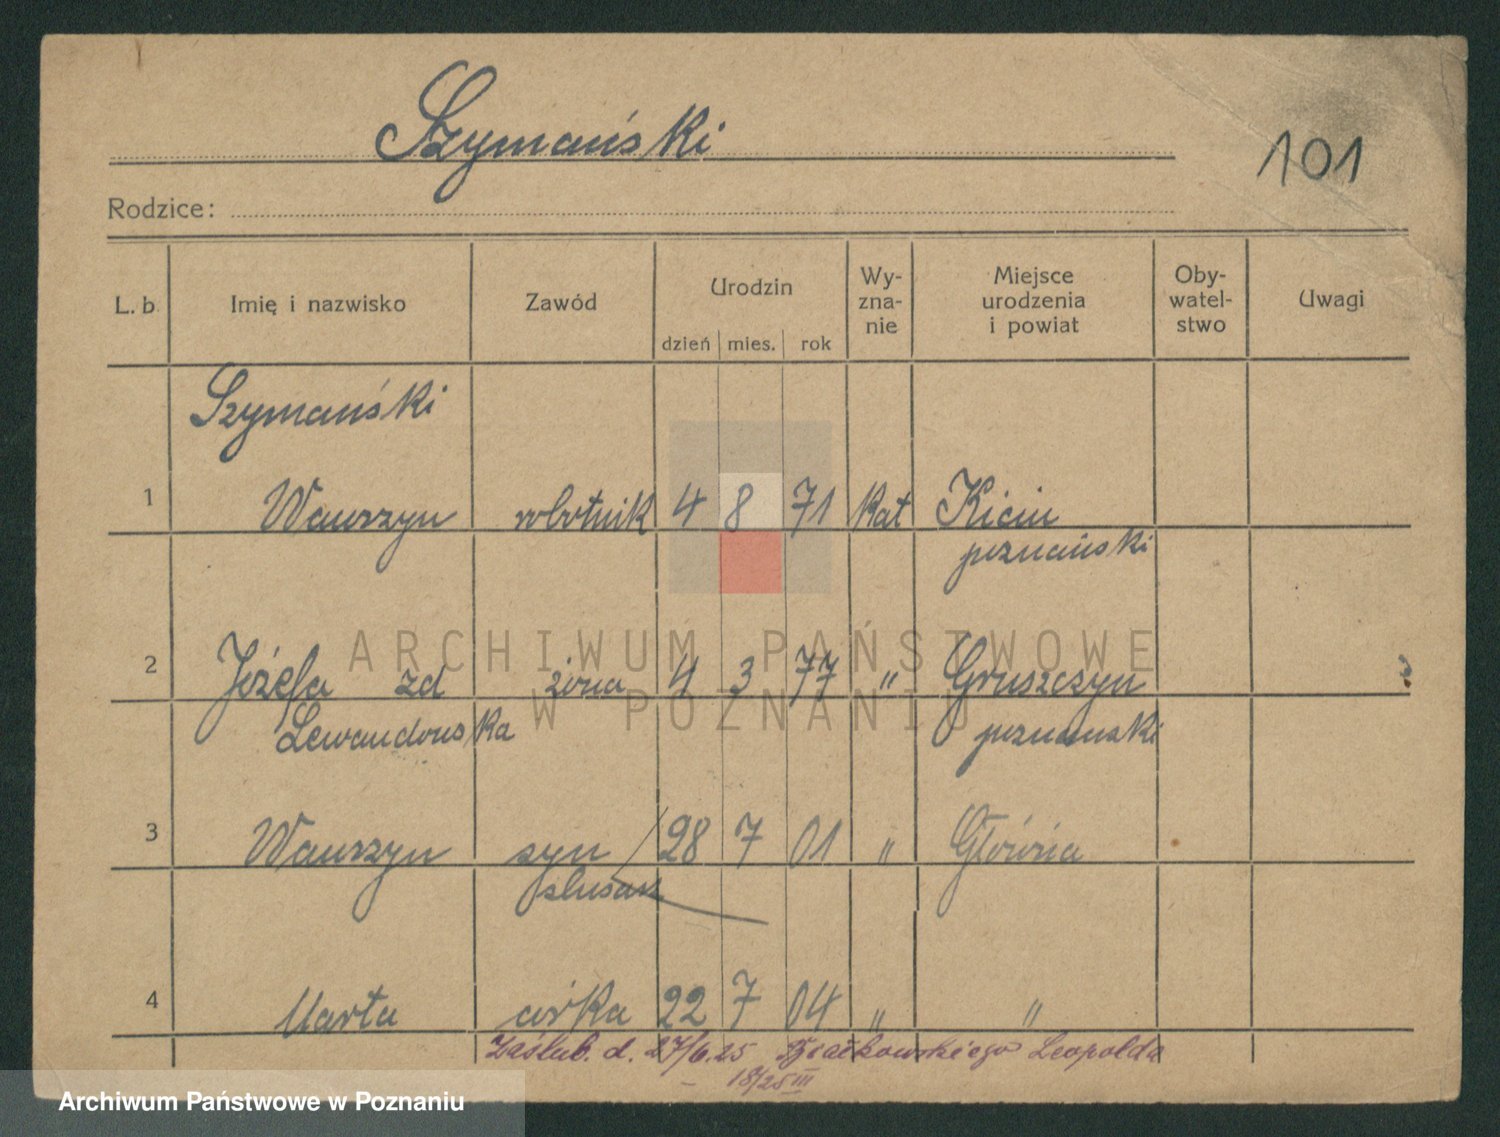 Szymański
101
Rodzice:
L. b. Imię i nazwisko Zawód Urodzin dzień mies. rok Wy-zna-nie Miejsce urodzenia i powiat Oby-watel-stwo Uwagi
Szymański
1 Wawrzyn robotnik 4 8 71 kat Kicin
poznański
ARCHIWUM PAŃSTWOWE
W POZNANIU
2 Józefa zd żona 4 3 77 " Gruszczyn
Lewandowska poznański
3 Wawrzyn syn 28 7 01 " Główna
ślusarz
4 Marta córka 22 7 04 " "
Zaślub. d. 27/6.25 Leopolda
18/25 III
Archiwum Państwowe w Poznaniu